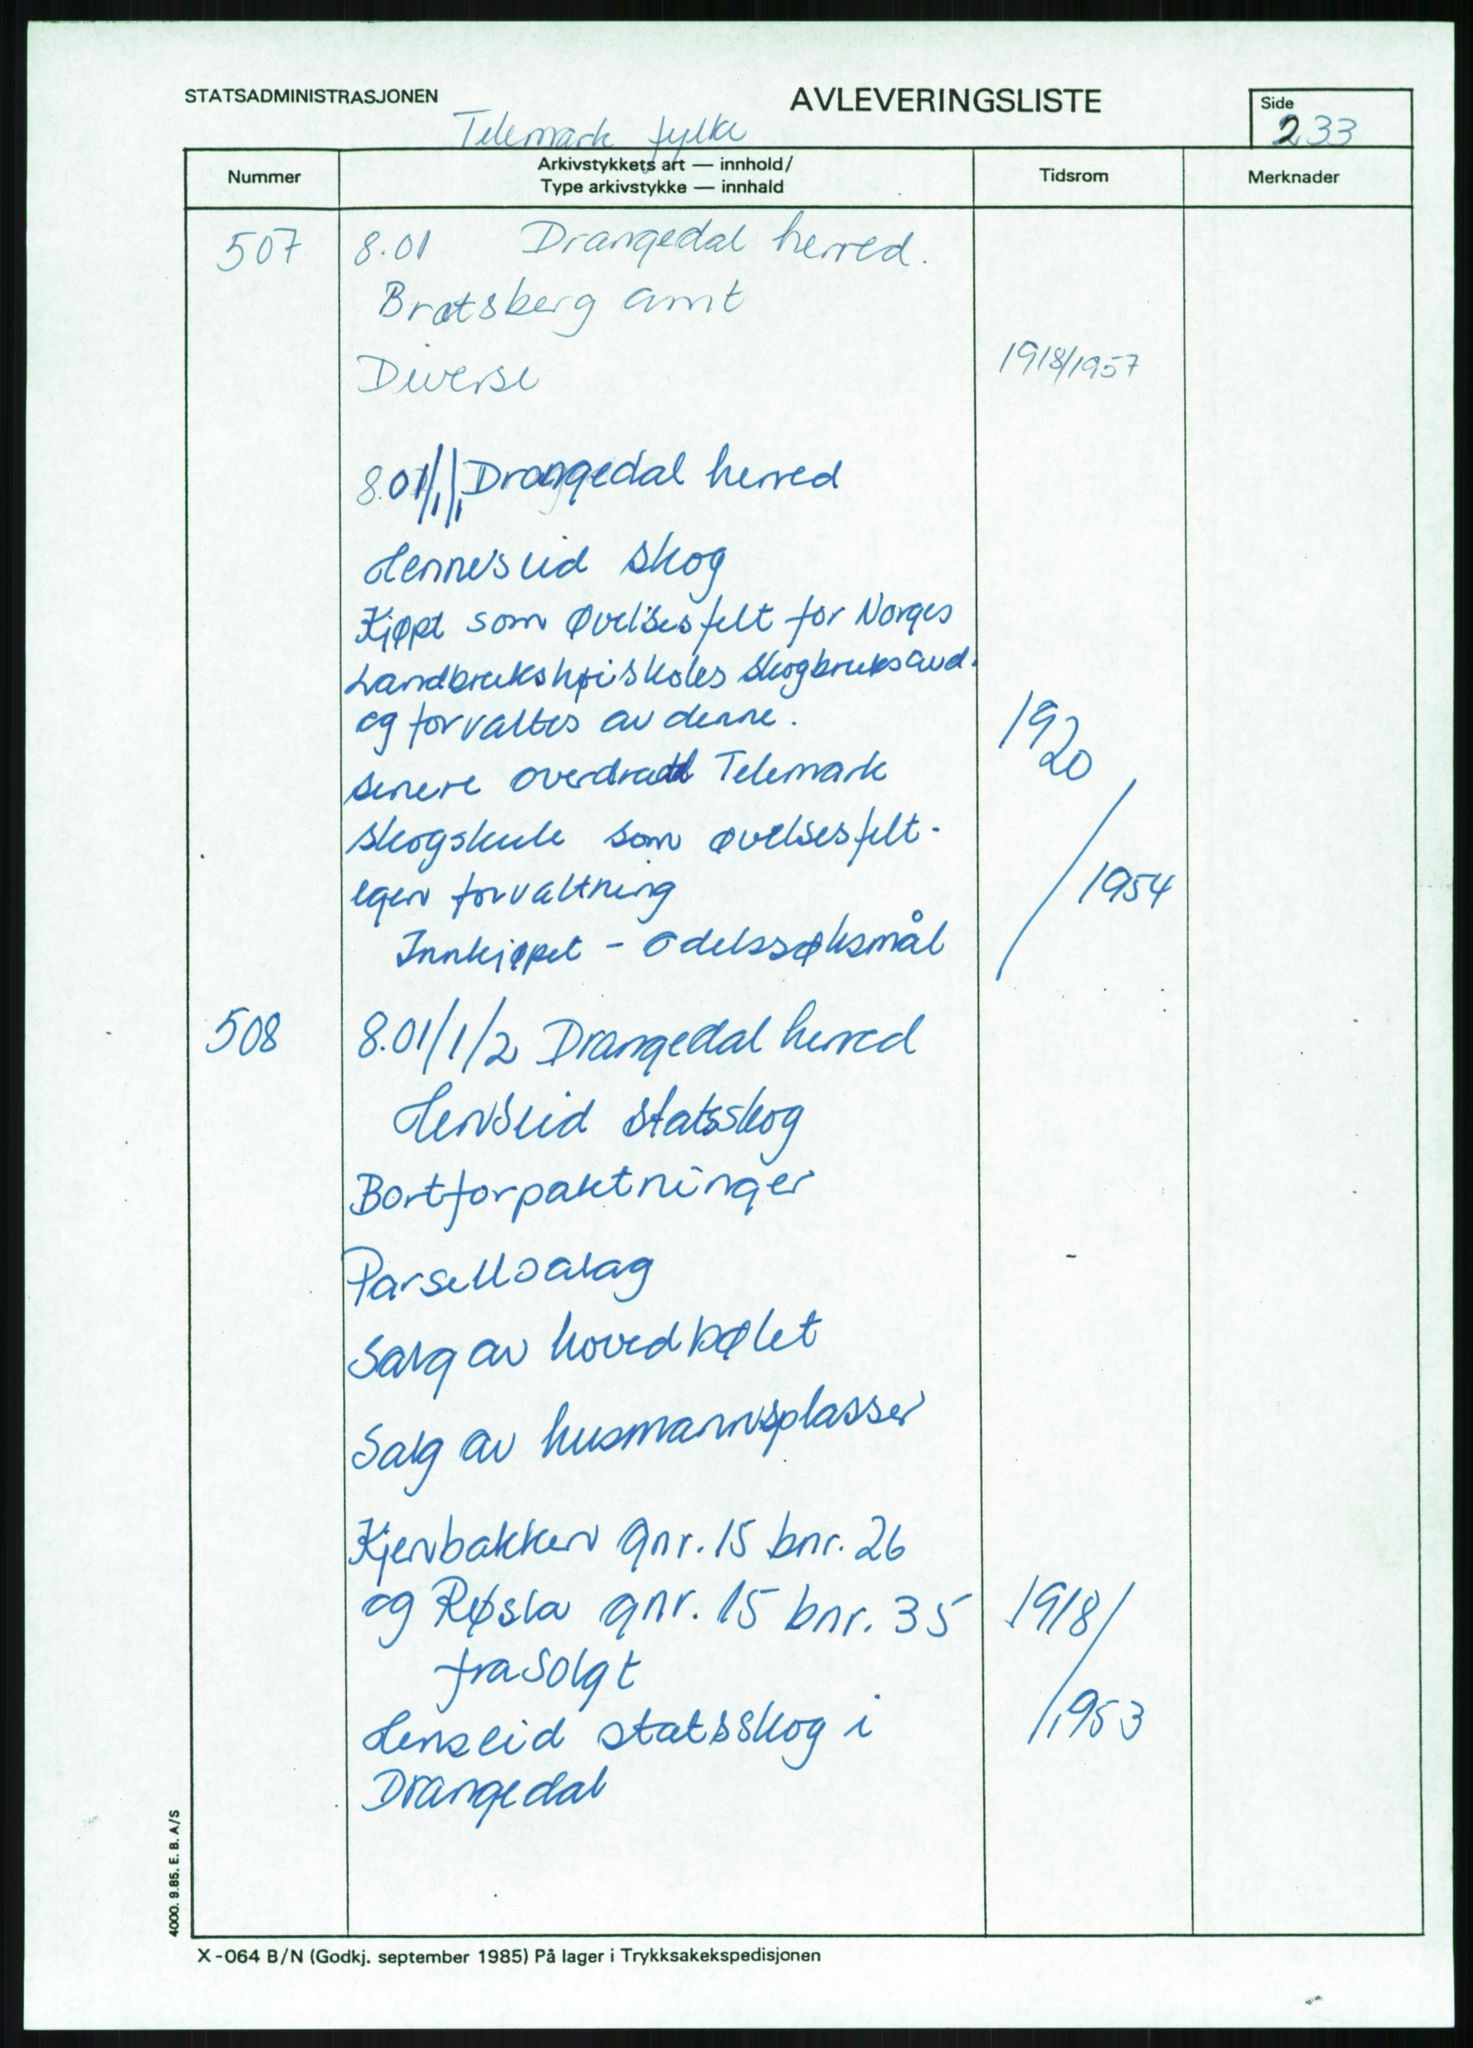 STATSADMINISTRASJONEN
AVLEVERINGSLISTE
Side
233
Telemark fylke
Nummer
Arkivstykkets art — innhold/
Type arkivstykke — innhald
Tidsrom
Merknader
507
8.01 Drangedal herred.
Bratsberg amt
Diverse
1918/1957
8.01/1/1 Drangedal herred
Henneseid skog
Kjøpt som øvelsesfelt for Norges
Landbrukshøiskoles skogbruksavd.
og forvaltes av denne.
1920
senere overdratt Telemark
skogskule som øvelsesfelt -
/1954
egen forvaltning
Innkjøpet - odelssøksmål
508
8.01/1/2 Drangedal herred
Henseid statsskog
Bortforpaktninger
Parsellsalag
Salg av hovedbølet
Salg av husmannsplasser
Kjenbakken gnr. 15 bnr. 26
og Røsla gnr. 15 bnr. 35
1918/
frasolgt
Henseid statsskog i
/1953
Drangedal
4000. 9.85. E. B. A/S
X-064 B/N (Godkj. september 1985) På lager i Trykksakekspedisjonen